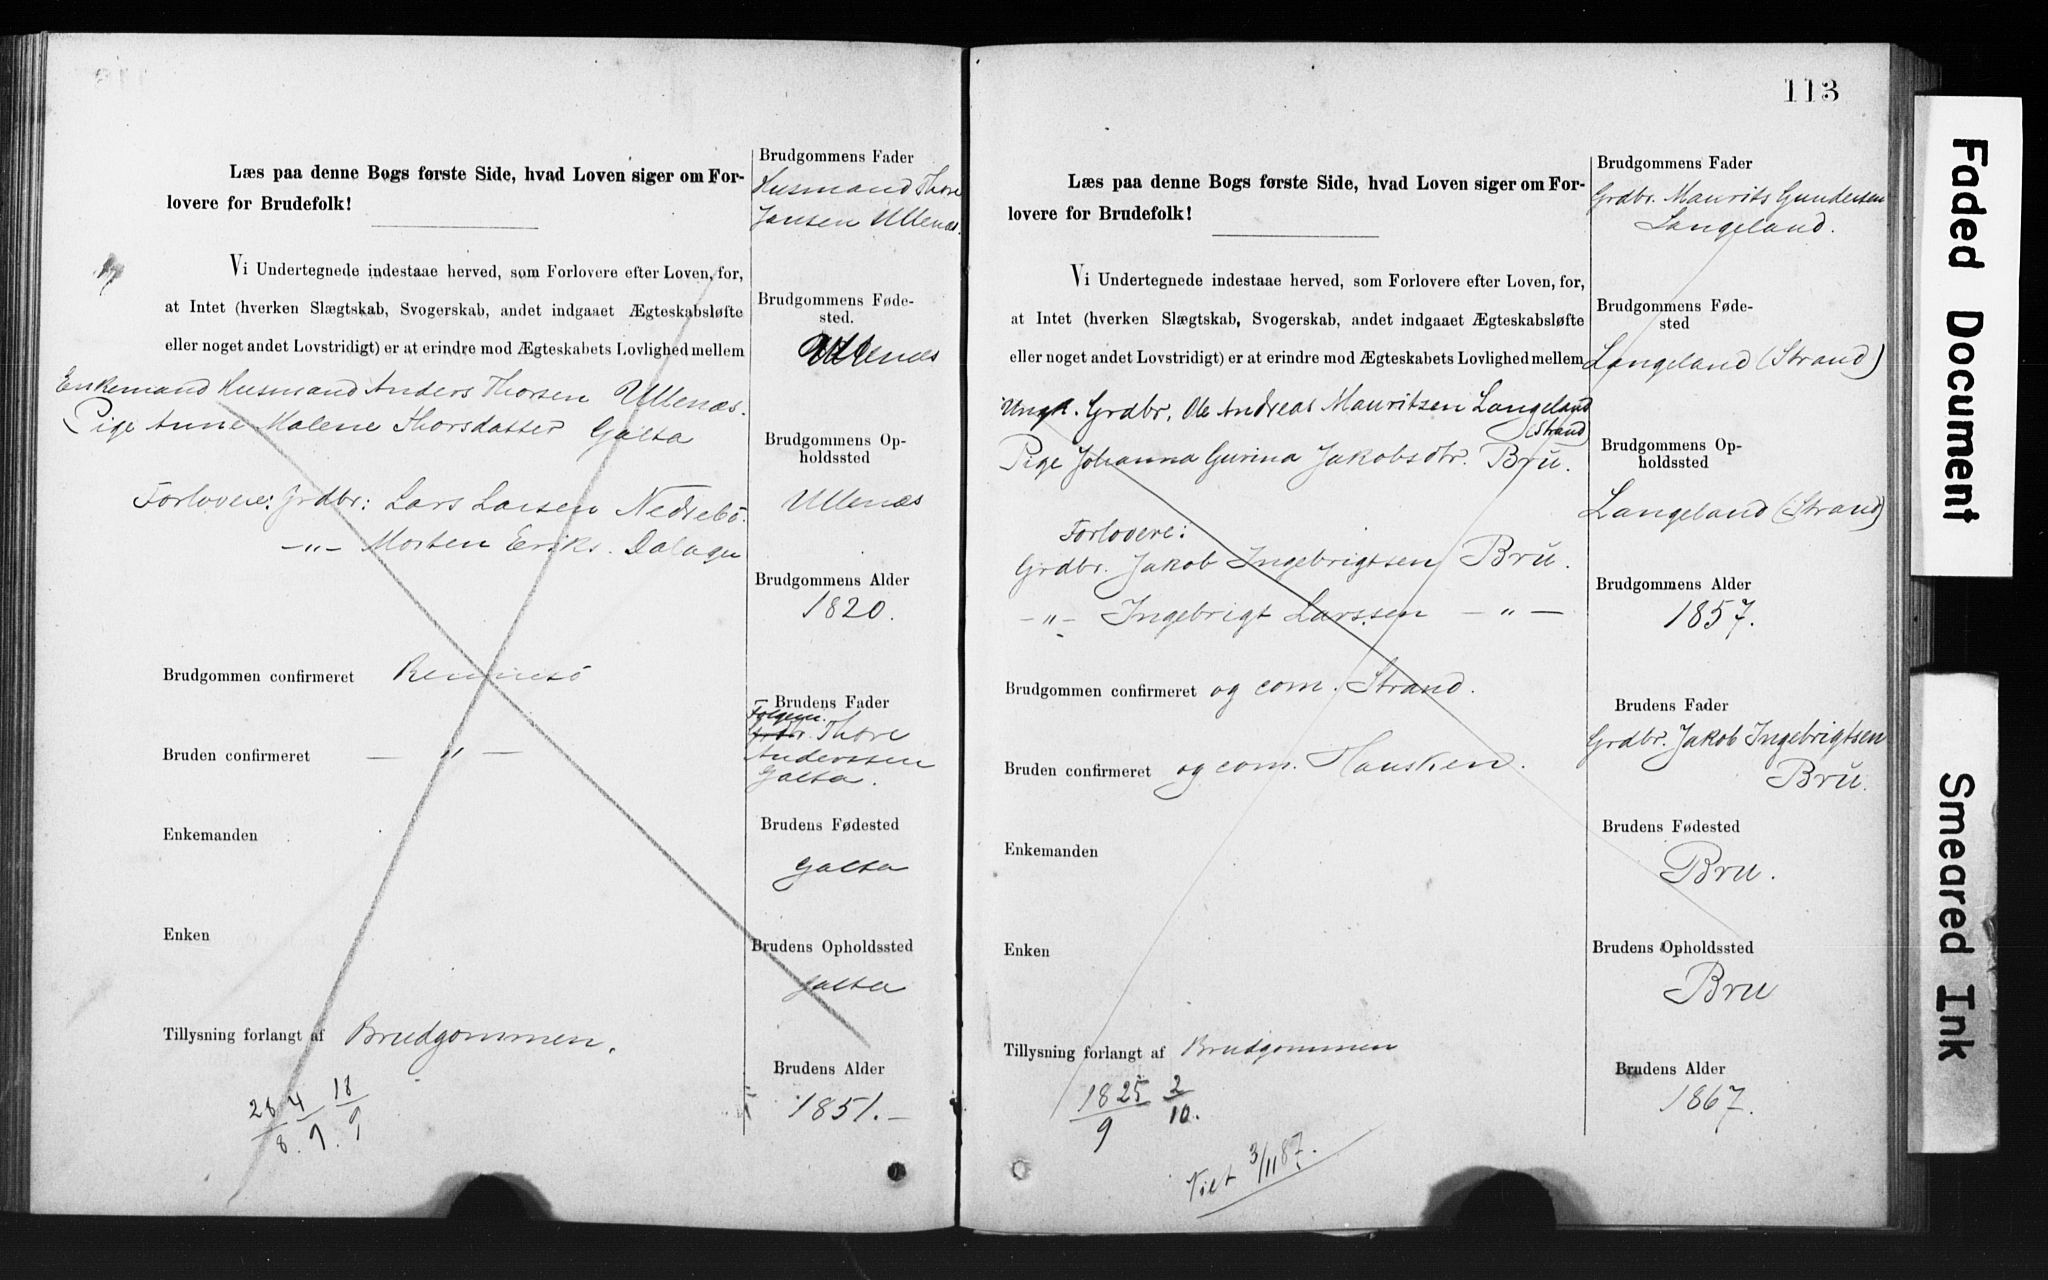 Læs paa denne Bogs første Side, hvad Loven siger om For-
lovere for Brudefolk!
Vi Undertegnede indestaae herved, som Forlovere efter Loven, for,
at Intet (hverken Slægtskab, Svogerskab, andet indgaaet Ægteskabsløfte
eller noget andet Lovstridigt) er at erindre mod Ægteskabets Lovlighed mellem
Enkemand Husmand Anders Thorsen Ullenæs.
Pige Anne Malene Thorsdatter Galta
Forlovere: Grdbr: Lars Larsen Nedrebö.
—"— Morten Eriks. Dalager
Brudgommen confirmeret Rennesö
Bruden confirmeret — " —
Enkemanden
Enken
Tillysning forlangt af Brudgommen.
28/8. 4/9. 18/9
Brudgommens Fader
Husmand Thore
Jansen Ullenæs.
Brudgommens Føde-
sted.
Ullenæs
Brudgommens Op-
holdssted
Ullenæs
Brudgommens Alder
1820.
Brudens Fader
Folgem.
Grdbr. Thore
Anderssen
Galta.
Brudens Fødested
Galta
Brudens Opholdssted
Galta
Brudens Alder
1851.—
113
Læs paa denne Bogs første Side, hvad Loven siger om For-
lovere for Brudefolk!
Vi Undertegnede indestaae herved, som Forlovere efter Loven, for,
at Intet (hverken Slægtskab, Svogerskab, andet indgaaet Ægteskabsløfte
eller noget andet Lovstridigt) er at erindre mod Ægteskabets Lovlighed mellem
Ungk. Grdbr. Ole Andreas Mauritsen Langeland
(Strand)
Pige Johanna Gurina Jakobsdtr. Bru.
Forlovere:
Grdbr. Jakob Ingebrigtsen Bru.
—"— Ingebrigt Larssen — " —
Brudgommen confirmeret og com. Strand.
Bruden confirmeret og com. Hausken.
Enkemanden
Enken
Tillysning forlangt af Brudgommen
18 25/9 2/10.
Viet 3/11 87.
Brudgommens Fader
Grdbr. Maurits Gundersen
Langeland.
Brudgommens Føde-
sted
Langeland (Strand)
Brudgommens Op-
holdssted
Langeland (Strand)
Brudgommens Alder
1857.
Brudens Fader
Grdbr. Jakob Ingebrigtsen
Bru.
Brudens Fødested
Bru.
Brudens Opholdssted
Bru
Brudens Alder
1867.
Faded Document
Smeared Ink